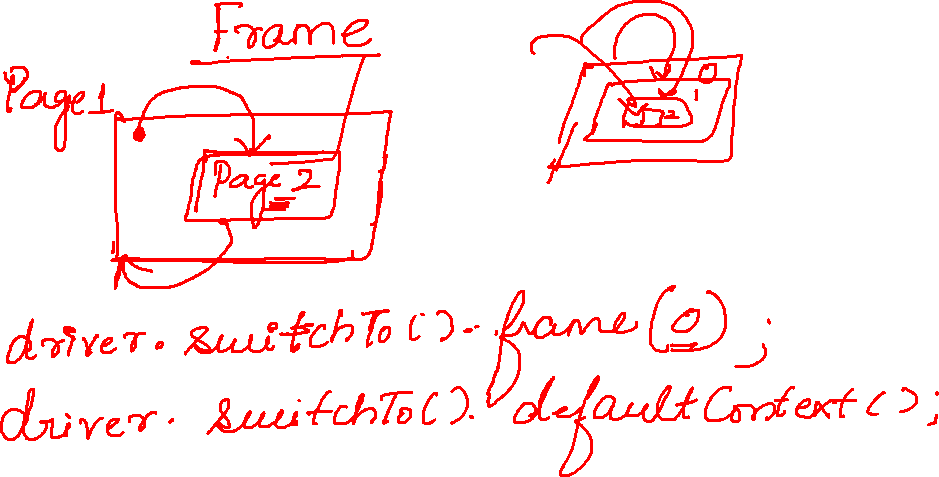 Frame
Page 1
Page 2
0
1
2
driver.switchTo().frame(0);
driver.switchTo().defaultContext();